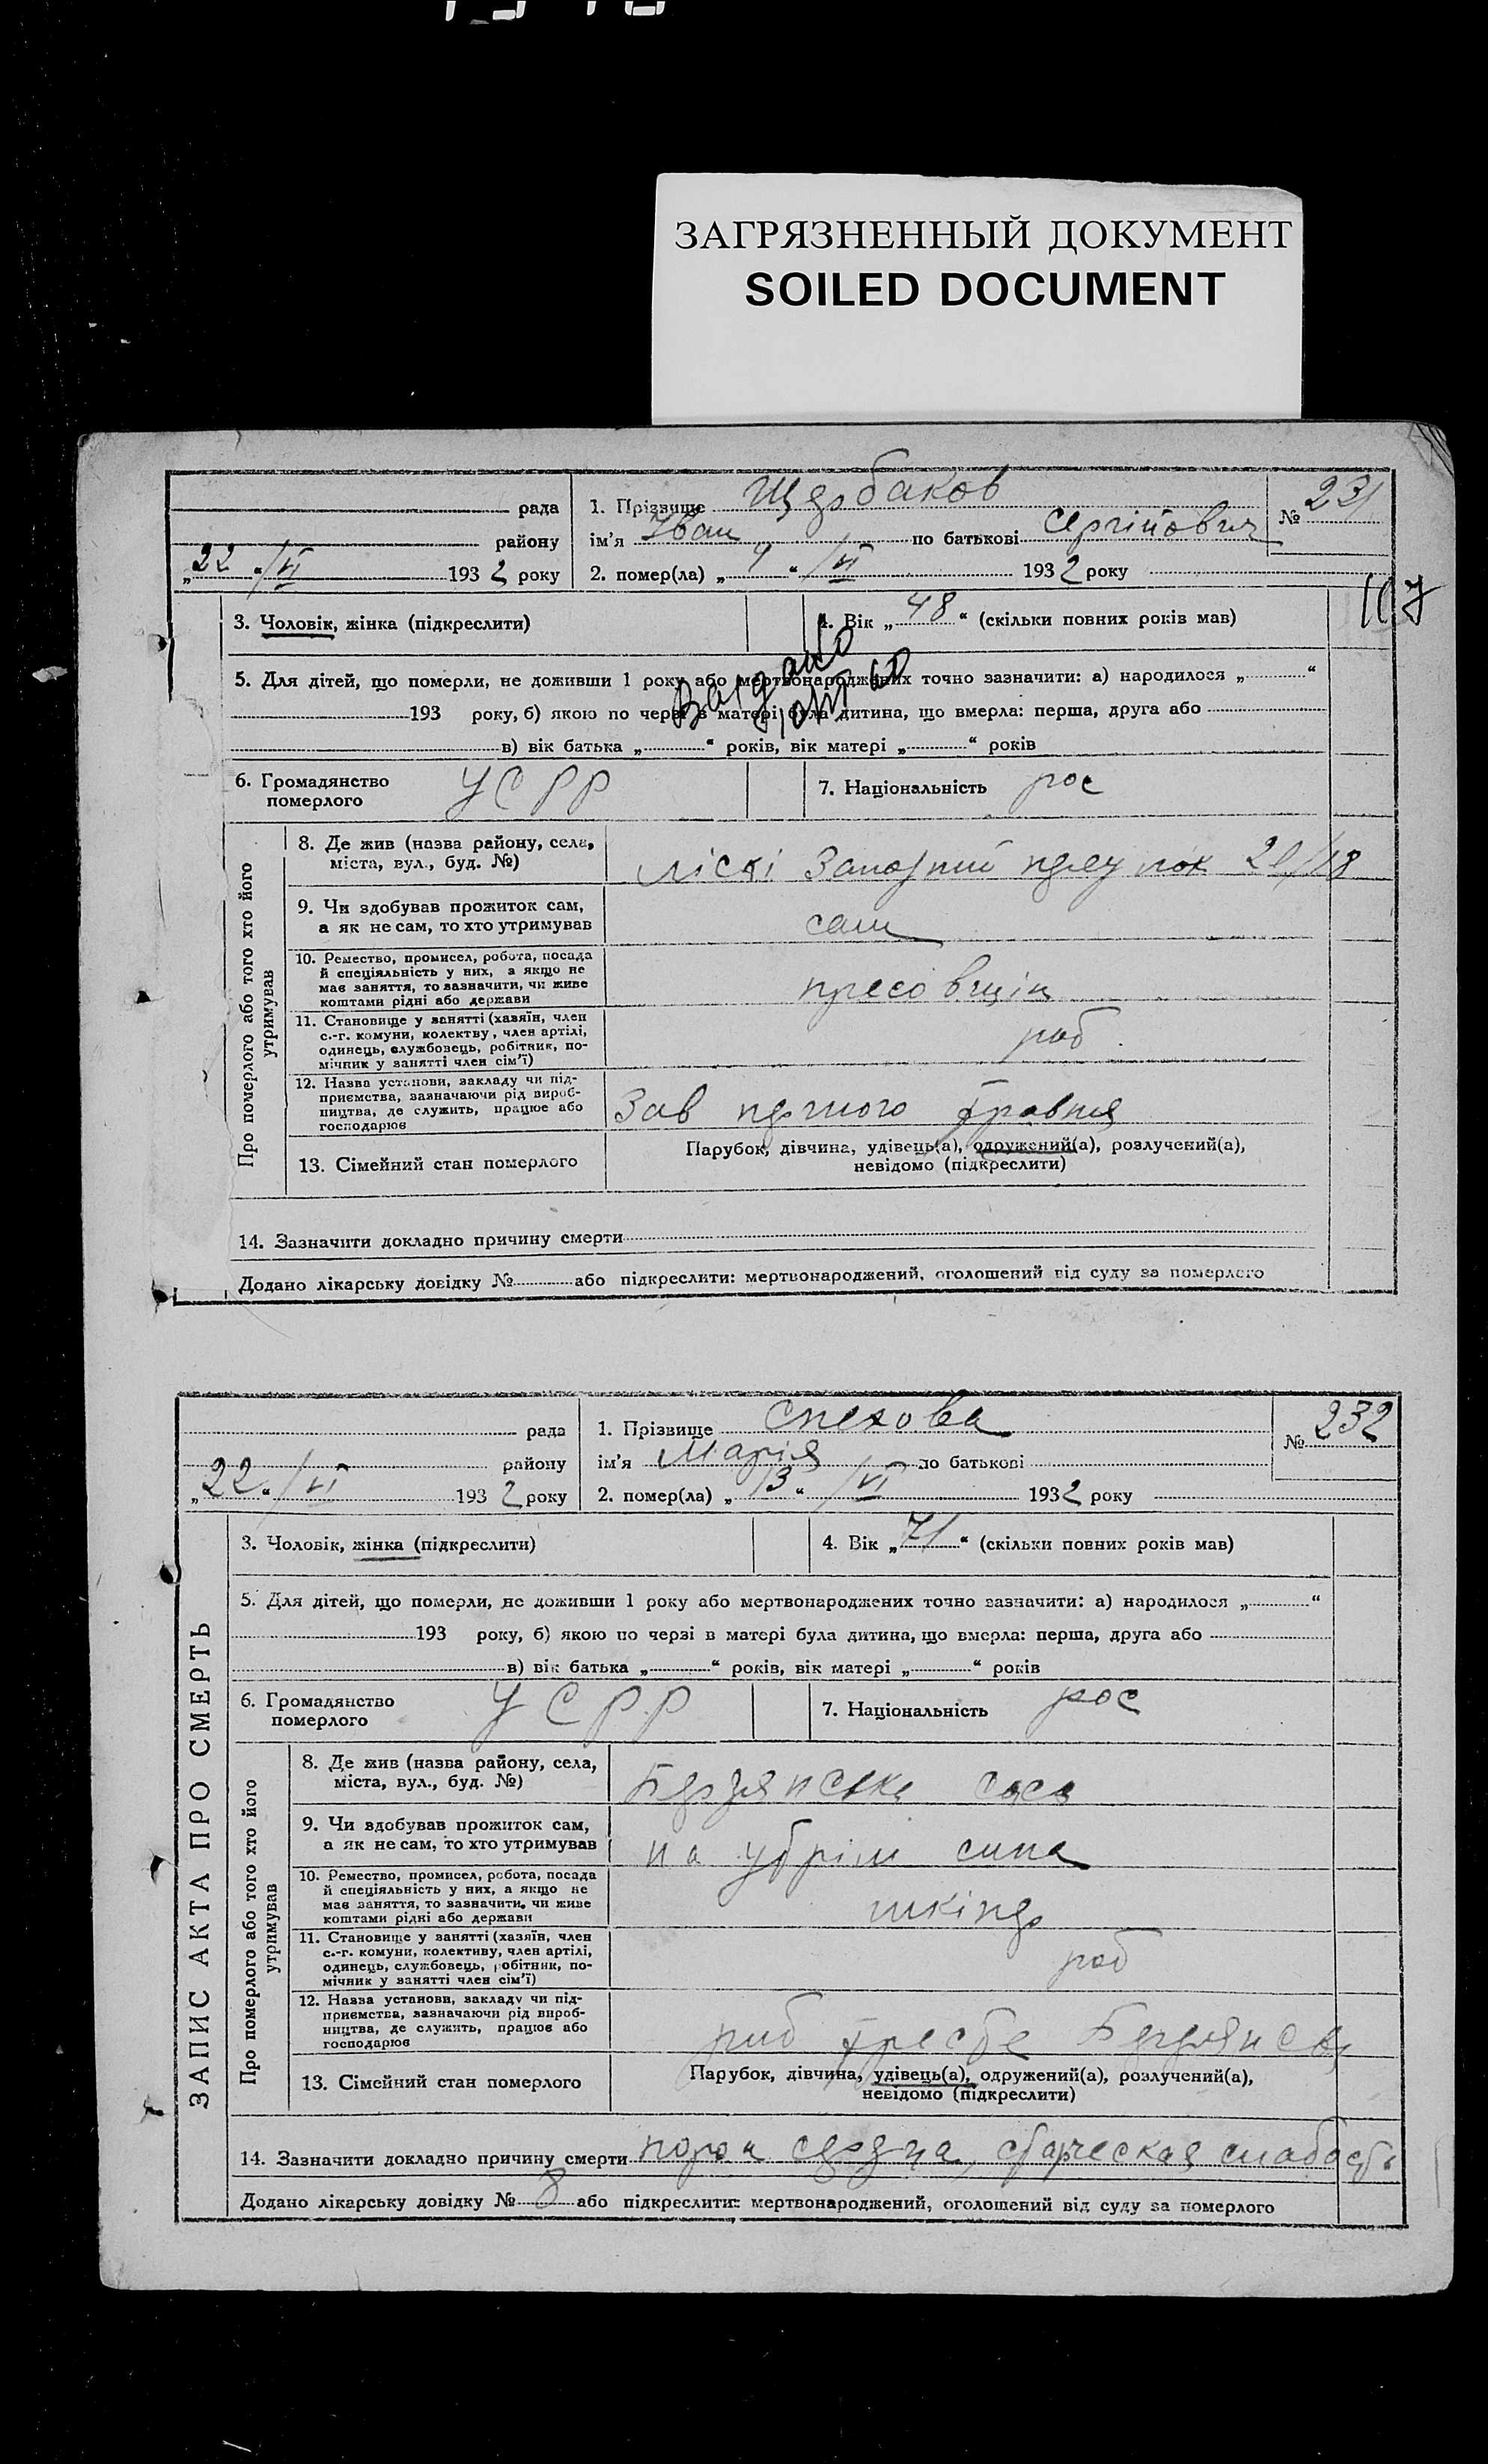 ЗАГРЯЗНЕННЫЙ ДОКУМЕНТ
SOILED DOCUMENT
рада
району
„22“ /VI 1932 року
1. Прізвище Щербаков
ім'я Іван по батькові Сергійович
2. помер(ла) „4“ /VI 1932 року
№ 231
107
3. Чоловік, жінка (підкреслити)
4. Вік „48“ (скільки повних років мав)
5. Для дітей, що померли, не доживши 1 року або мертвонароджених точно зазначити: а) народилося „ “
193 року, б) якою по черзі в матері була дитина, що вмерла: перша, друга або
в) вік батька „ “ років, вік матері „ “ років
6. Громадянство
померлого
УСРР
7. Національність рос
Про померлого або того хто його
утримував
8. Де жив (назва району, села,
міста, вул., буд. №)
Ліскі
9. Чи здобував прожиток сам,
а як не сам, то хто утримував
сам
10. Ремество, промисел, робота, посада
й спеціяльність у них, а якщо не
має заняття, то зазначити, чи живе
коштами рідні або держави
пресовщік
11. Становище у занятті (хазяїн, член
с.-г. комуни, колектву, член артілі,
одинець, службовець, робітник, по-
мічник у занятті член сім'ї)
роб
12. Назва установи, закладу чи під-
приємства, зазначаючи рід вироб-
ництва, де служить, працює або
господарює
Зав першого травня
13. Сімейний стан померлого
Парубок, дівчина, удівець(а), одружений(а), розлучений(а),
невідомо (підкреслити)
14. Зазначити докладно причину смерти
Додано лікарську довідку № або підкреслити: мертвонароджений, оголошений від суду за померлого
ЗАПИС АКТА ПРО СМЕРТЬ
рада
району
„22“ /VI 1932 року
1. Прізвище Спехова
ім'я Марія по батькові
2. помер(ла) „13“ /VI 1932 року
№ 232
3. Чоловік, жінка (підкреслити)
4. Вік „71“ (скільки повних років мав)
5. Для дітей, що померли, не доживши 1 року або мертвонароджених точно зазначити: а) народилося „ “
193 року, б) якою по черзі в матері була дитина, що вмерла: перша, друга або
в) вік батька „ “ років, вік матері „ “ років
6. Громадянство
померлого
УСРР
7. Національність рос
Про померлого або того хто його
утримував
8. Де жив (назва району, села,
міста, вул., буд. №)
Бердянська коса
9. Чи здобував прожиток сам,
а як не сам, то хто утримував
на утрім сина
10. Ремество, промисел, робота, посада
й спеціяльність у них, а якщо не
має заняття, то зазначити, чи живе
коштами рідні або держави
шкіпер
11. Становище у занятті (хазяїн, член
с.-г. комуни, колективу, член артілі,
одинець, службовець, робітник, по-
мічник у занятті член сім'ї)
роб
12. Назва установи, закладу чи під-
приємства, зазначаючи рід вироб-
ництва, де служить, працює або
господарює
риб тресте
13. Сімейний стан померлого
Парубок, дівчина, удівець(а), одружений(а), розлучений(а),
невідомо (підкреслити)
14. Зазначити докладно причину смерти порок сердца, старческая слабость
Додано лікарську довідку № 8 або підкреслити: мертвонароджений, оголошений від суду за померлого